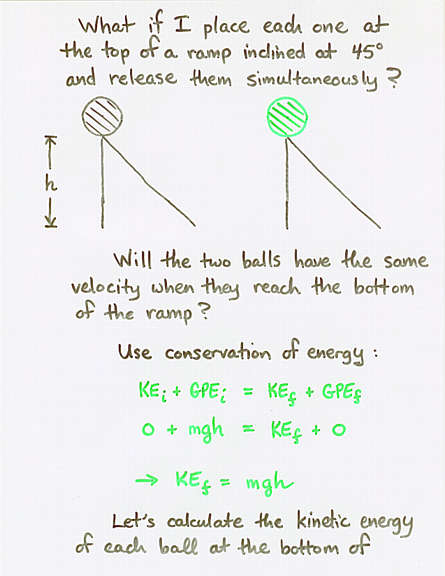 What if I place each one at
the top of a ramp inclined at 45°
and release them simultaneously?
h
Will the two balls have the same
velocity when they reach the bottom
of the ramp?
Use conservation of energy:
KEi + GPEi = KEf + GPEf
0 + mgh = KEf + 0
→ KEf = mgh
Let's calculate the kinetic energy
of each ball at the bottom of